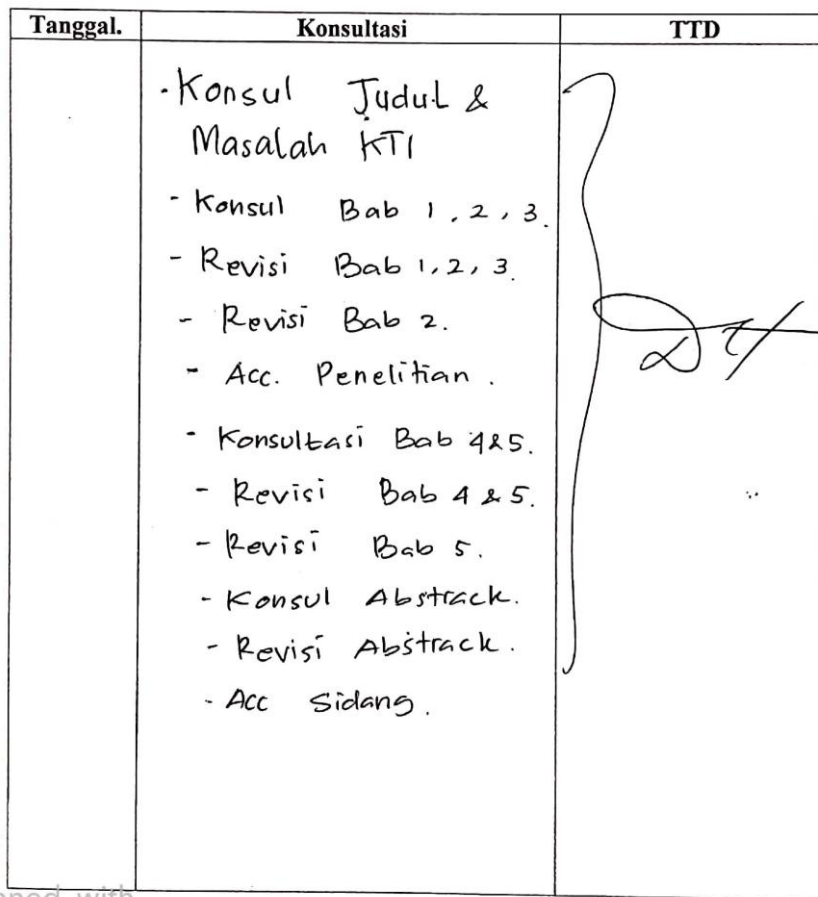 Tanggal. Konsultasi TTD
- Konsul Judul &
Masalah KTI
- Konsul Bab 1, 2, 3.
- Revisi Bab 1, 2, 3.
- Revisi Bab 2.
- Acc. Penelitian.
- Konsultasi Bab 4&5.
- Revisi Bab 4 & 5.
- Revisi Bab 5.
- Konsul Abstrack.
- Revisi Abstrack.
- Acc Sidang.